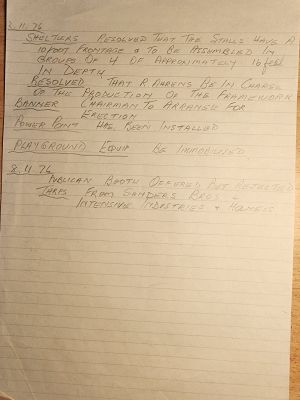 2.11.76
SHELTERS RESOLVED THAT THE STALLS HAVE A
10 FOOT FRONTAGE & TO BE ASSEMBLED IN
GROUPS OF 4 OF APPROXIMATELY 16 feet
IN DEPTH
RESOLVED THAT R. AHRENS BE IN CHARGE
OF THE PRODUCTION OF THE FRAMEWORK
BANNER CHAIRMAN TO ARRANGE FOR
ERECTION
POWER POINT HAS BEEN INSTALLED
PLAYGROUND EQUIP BE IMMOBILISED
8.11.76
PUBLICAN BOOTH OFFERED BUT REJECTED
TARPS FROM SANDERS BROS
INTENSIVE INDUSTRIES &